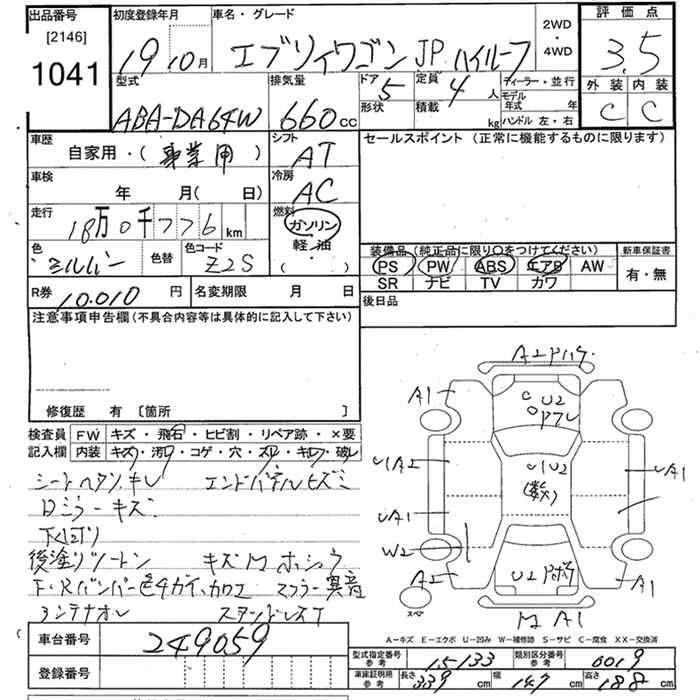 出品番号 初度登録年月 車名・グレード 2WD・4WD 評価点
[2146]
1041 19年10月 エブリイワゴン JP ハイルーフ 3.5
型式 排気量 ドア 5 定員 4人 ディーラー・並行 外装 内装
ABA-DA64W 660cc 形状 積載 kg モデル年式 年 ハンドル 左・右 C C
車歴 自家用・(事業用) シフト AT セールスポイント (正常に機能するものに限ります)
車検 年 月(日) 冷房 AC
走行 18万0千776km 燃料 ガソリン 軽油 ( ・ )
色 シルバー 色替 色コード Z2S 装備品 (純正品に限り○をつけてください) 新車保証書
PS PW ABS エアB AW 有・無
SR ナビ TV カワ
R券 10.010円 名変期限 月 日 後日品
注意事項申告欄 (不具合内容等は具体的に記入して下さい)
修復歴 有 [箇所 ]
検査員 FW キズ・飛石・ヒビ割・リペア跡・×要
記入欄 内装 キズ・汚れ・コゲ・穴・スレ・キレ・破レ
エンドパネルヒズミ
ミラーキズ
下
後塗りツートン キズ M ホシュウ
F・Rバンパー マフラー異音
車台番号 249059
登録番号
A2
A1 U2 A1
U2
UA1 UA1
W2
A2 U2 A1
スペア
A1
A-キズ E-エクボ U-凹み W-補修跡 S-サビ C-腐食 XX-交換済
型式指定番号 参考 15133 類別区分番号 参考 0019
車庫証明用 参考 長さ 339cm 幅 147cm 高さ 188cm